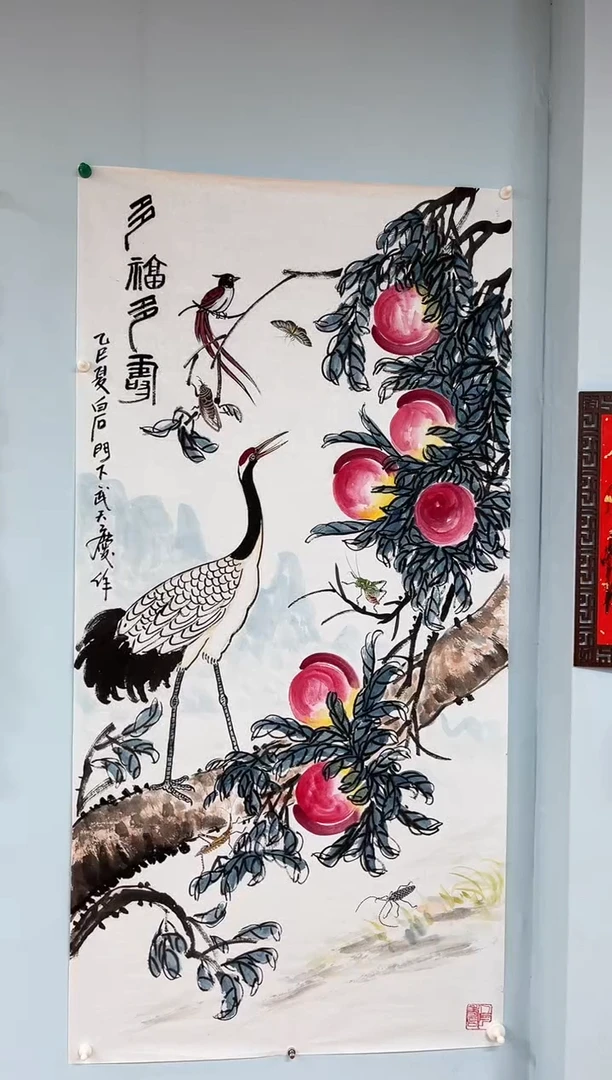 多福多寿
乙巳夏白石門下武天慶作